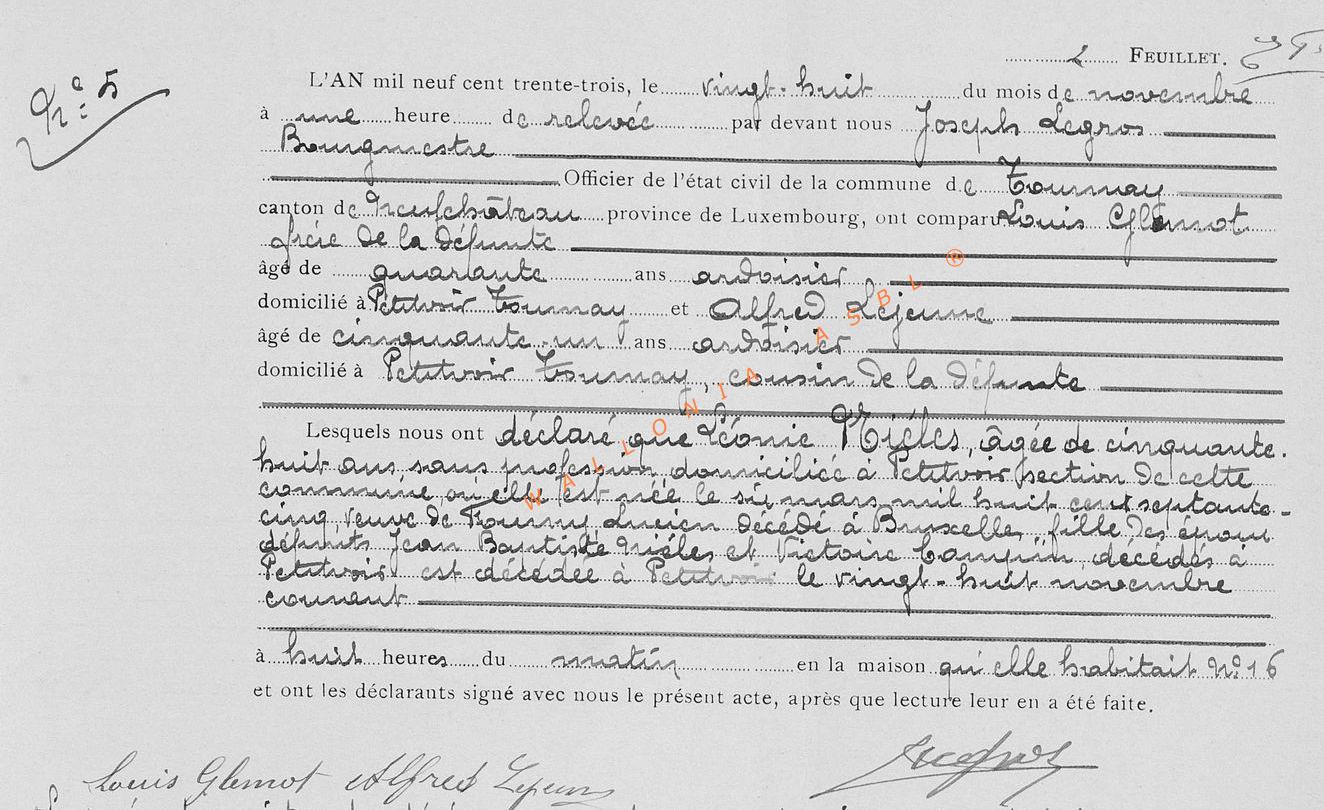 2 FEUILLET.
Nº 5
L'AN mil neuf cent trente-trois, le vingt-huit du mois de novembre
à une heure de relevée par devant nous Joseph Legros
Bourgmestre
Officier de l'état civil de la commune de Tournay
canton de Neufchâteau province de Luxembourg, ont comparu Louis Glemot
frère de la défunte
âgé de quarante ans ardoisier
domicilié à Petitvoir Tournay et Alfred Lejeune
âgé de cinquante-un ans ardoisier
domicilié à Petitvoir Tournay, cousin de la défunte
Lesquels nous ont déclaré que Léonie Nièles, âgée de cinquante-
huit ans, sans profession, domiciliée à Petitvoir section de cette
commune où elle est née le six mars mil huit cent septante-
cinq, veuve de Lucien décédé à Bruxelles, fille des époux
défunts Jean Baptiste Nièles et Victoire décédés à
Petitvoir est décédée à Petitvoir le vingt-huit novembre
courant
à huit heures du matin en la maison qu'elle habitait Nº 16
et ont les déclarants signé avec nous le présent acte, après que lecture leur en a été faite.
Louis Glemot Alfred Lejeune Legros
WALLONIA ASBL ®